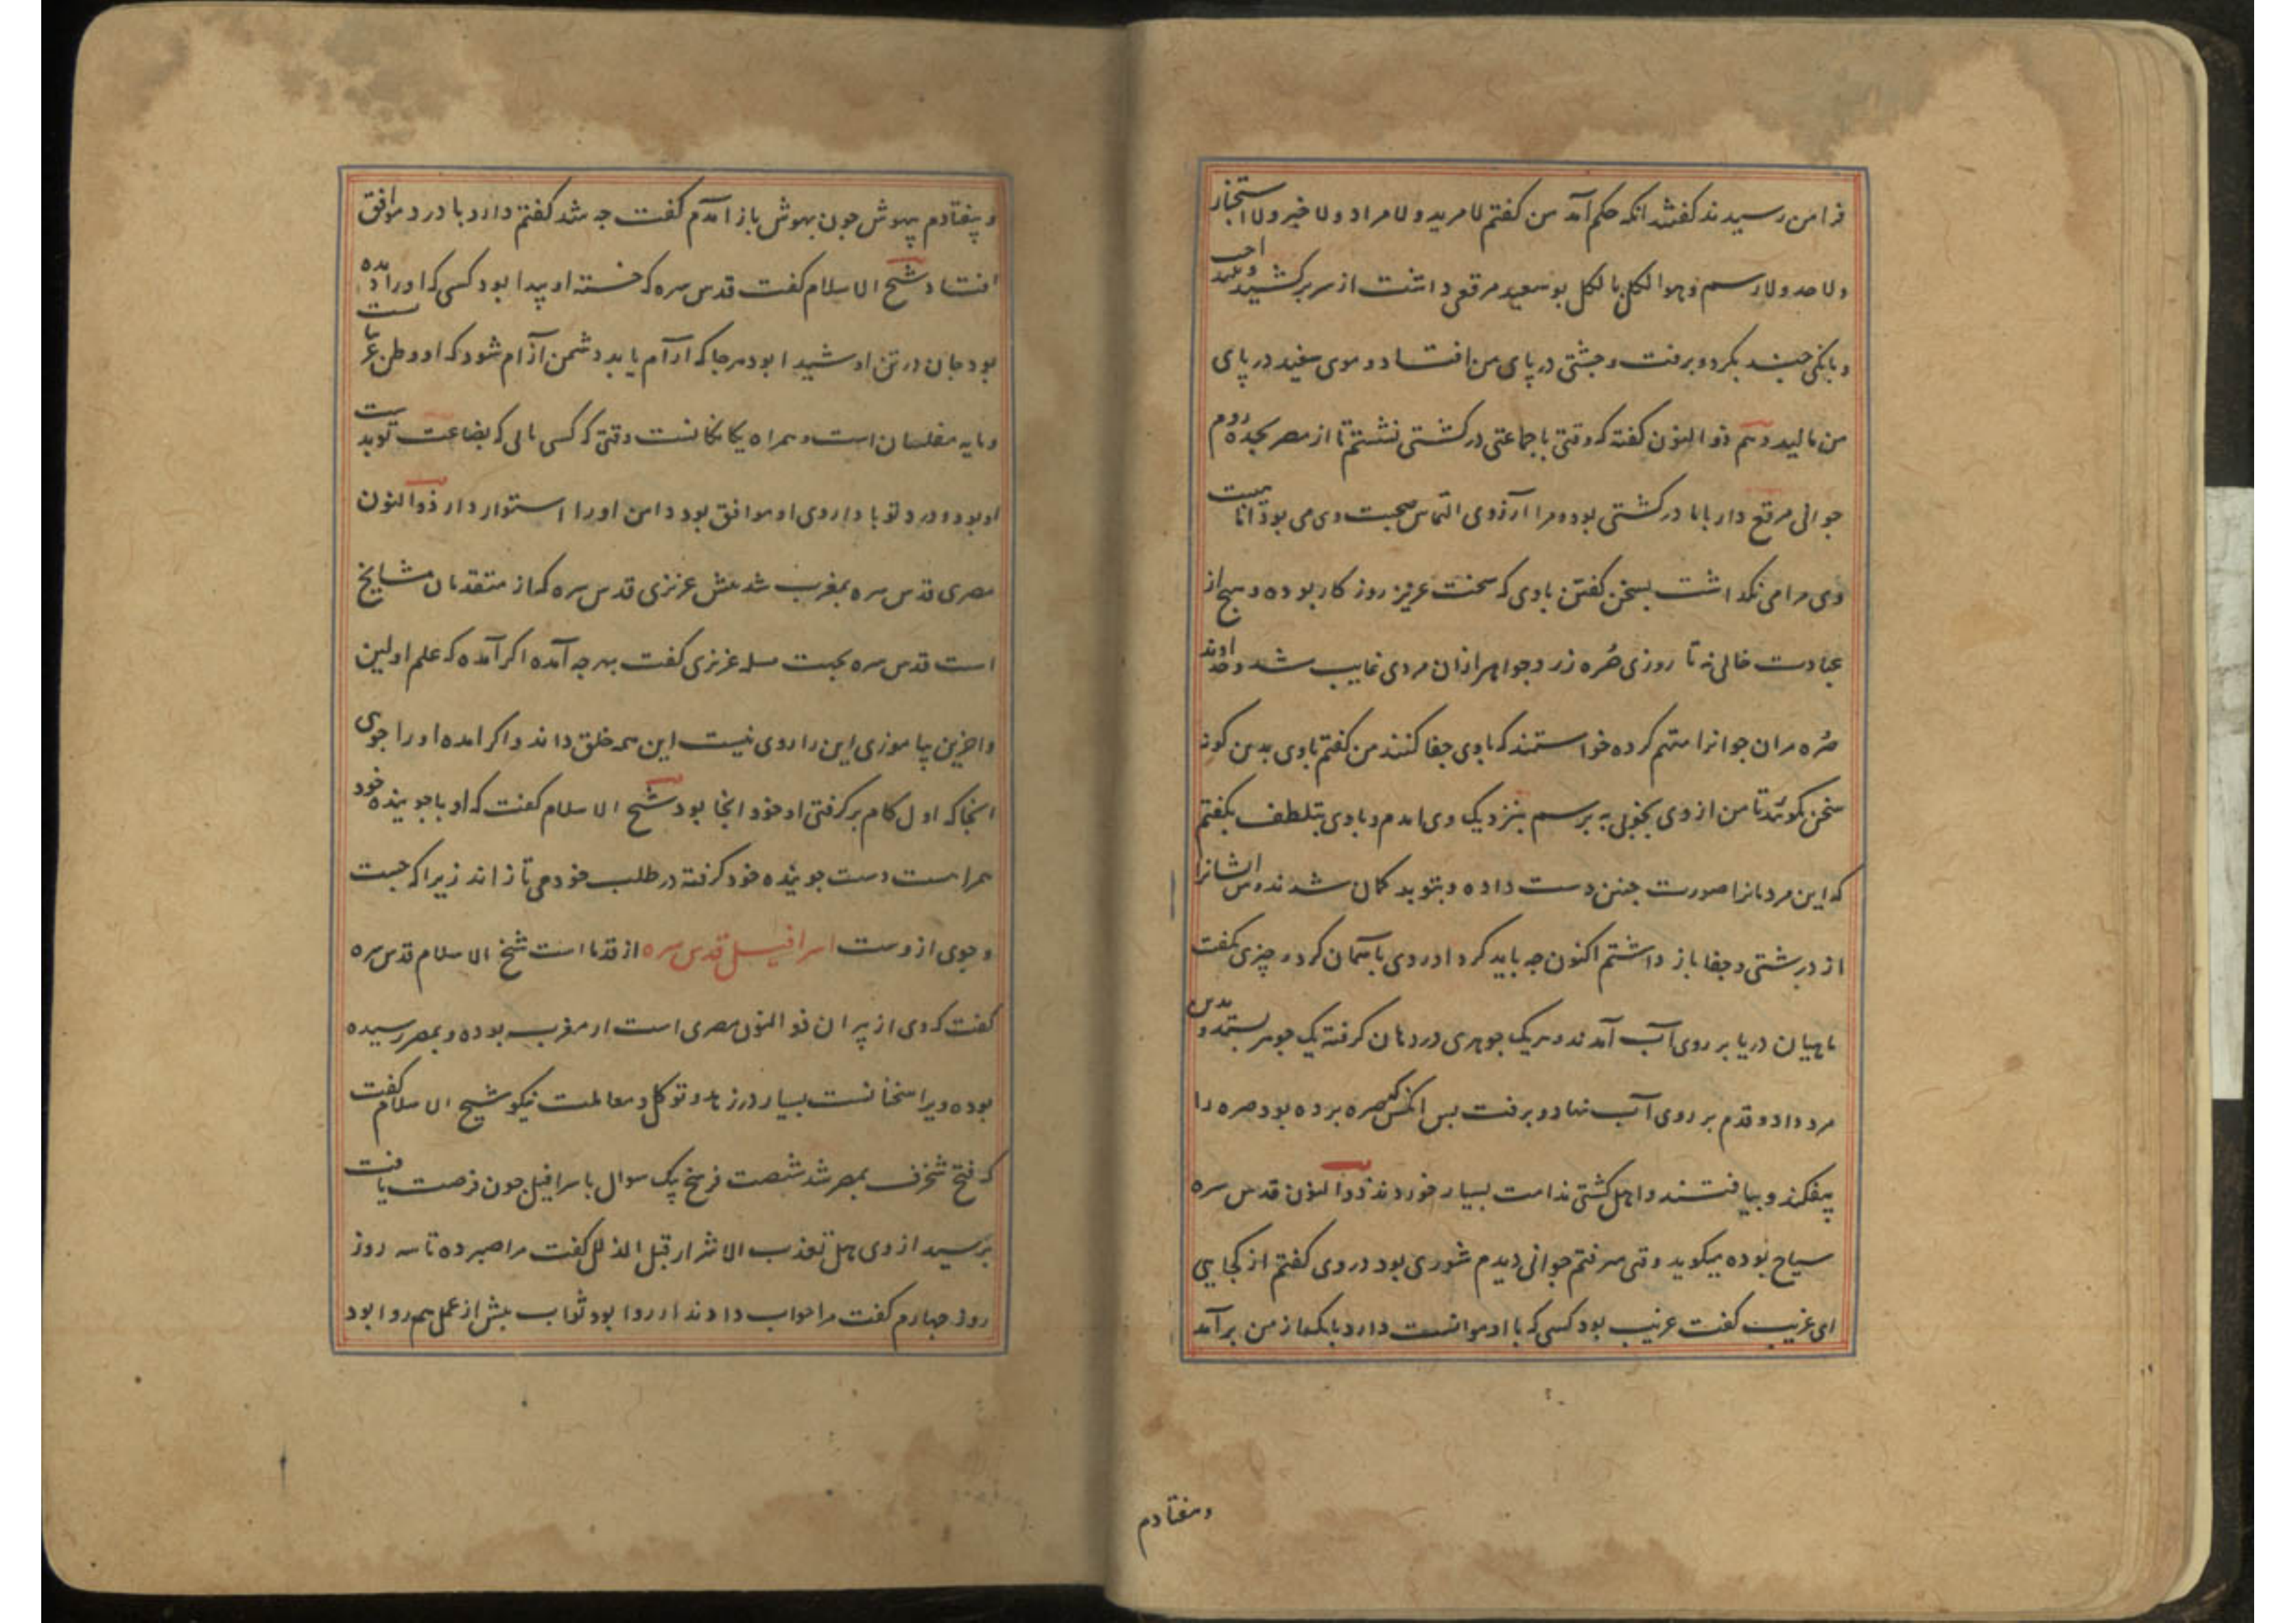 فرا من رسیدند گفتند انکه حکم آمد من گفتم لا مرید و لا مراد و لا خبر و لا استخبار
و لا حد و لا رسم و هو الکل بالکل بو سعید مرقعی داشت از سر برکشید
و بانکی جند بکرد و برفت و جشتی در پای من افتاد و موی سفید در پای
من مالید و هم ذو النون گفته که وقتی با جماعتی در کشتی نشستم تا از مصر بجده روم
جوانی مرقع دار با ما در کشتی بود و مرا آرزوی التماس صحبت وی می بود اما هیبت
وی مرا می نکذاشت بسخن گفتن با وی که سخت عزیز روزکار بوده و هیج از
عبادت خالی نه تا روزی صُره زر و جواهر ازان مردی غایب شد و خداوند
صُره مران جوانرا متهم کرده خواستند که با وی جفا کنند من گفتم با وی بدین کونه
سخن مکوئید تا من از وی بخوبی به برسم بنزدیک وی امدم و با وی بتلطف بکفتم
که این مردمانرا صورت جنین دست داده و بتو بد کمان شدند و من ایشانرا
از درشتی و جفا باز داشتم اکنون جه باید کرد او روی باسمان کرد و چیزی بکفت
ماهیان دریا بر روی آب آمدند و هر یک جوهری در دهان کرفته یک جوهر بستد و بدین
مرد داد و قدم بر روی آب نهاد و برفت بس انکس که صره برده بود صره را
بیفکند و بیافتند و اهل کشتی ندامت بسیار خوردند ذوالنون قدس سره
سیاح بوده میکوید وقتی میرفتم جوانی دیدم شوری بود در وی گفتم از کجایی
ای غریب گفت غریب بود کسی که با او موانست دارد بانک از من برآمد
وبیفتادم
و بیفتادم بیهوش جون بهوش باز امدم گفت جه شد گفتم دارو با درد موافق
افتاد شیخ الاسلام گفت قدس سره که خسته او پیدا بود کسی که او را دیده
بود جان در تن او شیدا بود هرجا که آرام یابد دشمن آزام شود که او وطن غریبانست
و مایه مفلسان است و همراه یکانکانست وقتی که کسی یابی که بضاعت تو بدست
او بود و درد تو با داروی او موافق بود دامن او را استوار دار ذوالنون
مصری قدس سره بمغرب شد پیش عزیزی قدس سره که از متقدمان مشایخ
است قدس سره بجهت مسله عزیزی گفت بهر جه آمده اکر آمده که علم اولین
و اخرین بیاموزی این را روی نیست این همه خلق داند و اکر امده او را جوی
انجا که اول کام بر کرفتی او خود انجا بود شیخ الاسلام گفت که او با جوینده خود
همراست دست جوینده خود کرفته در طلب خود می تازاند زیرا که جست
و جوی ازوست اسرافیل قدس سره از قدما است شیخ الاسلام قدس سره
گفت که وی از پیران ذو النون مصری است از مغرب بوده و بمصر رسیده
بوده ویرا سخنانست بسیار در زهد و توکل و معاملت نیکو شیخ الاسلام گفت
که فتح شخرف بمصر شد شصت فرسخ بیک سوال با سرافیل جون فرصت یافت
برسید از وی هل تعذب الاشرار قبل الذلل گفت مرا صبر ده تا سه روز
روز جهارم گفت مرا جواب دادند ار روا بود ثواب پیش از عمل هم روا بود